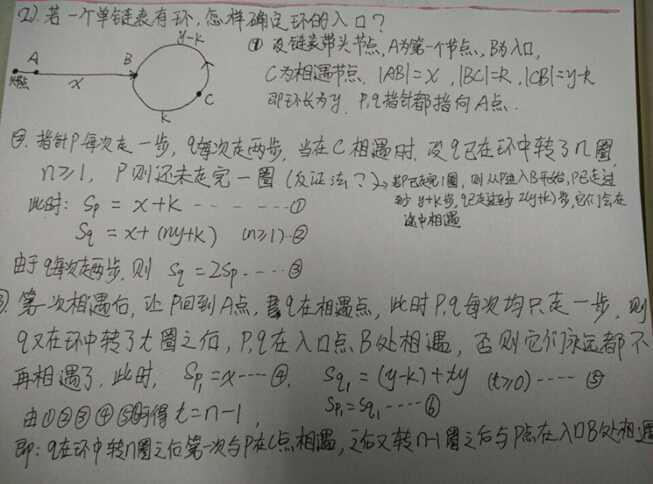 (2). 若一个单链表有环,怎样确定环的入口?
y-k
① 设链表带头节点, A为第一个节点, B为入口,
A B
C为相遇节点. |AB|=x, |BC|=k, |CB|=y-k
头节点 x C
即环长为y. P,q指针都指向A点.
k
②. 指针P每次走一步, q每次走两步, 当在C相遇时, 设q已在环中转了n圈,
n≥1, P则还未走完一圈 (反证法?) → 若P已走完1圈, 则从P进入B开始, P已走过
y+k步, q已走过 2(y+k)步, 它们会在
途中相遇
此时: Sp = x+k ------ ①
Sq = x+(ny+k) (n≥1)--②
由于q每次走两步, 则 Sq = 2Sp ---- ③
③. 第一次相遇后, 让P回到A点, q在相遇点, 此时P,q每次均只走一步, 则
q又在环中转了t圈之后, P,q在入口点B处相遇, 否则它们永远都不
再相遇了. 此时, Sp₁=x---- ④, Sq₁=(y-k)+ty (t≥0)---- ⑤
由①②③④⑤⑥可得 t=n-1, Sp₁=Sq₁---- ⑥
即: q在环中转n圈之后第一次与P在C点相遇, 之后又转n-1圈之后与P点在入口B处相遇